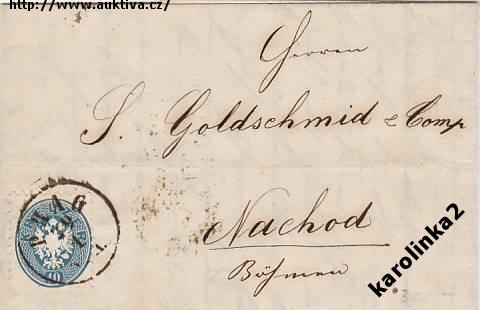 http://www.auktiva.cz/
Herren
S. Goldschmid & Comp
Nachod
Böhmen
PRAG
karolinka2